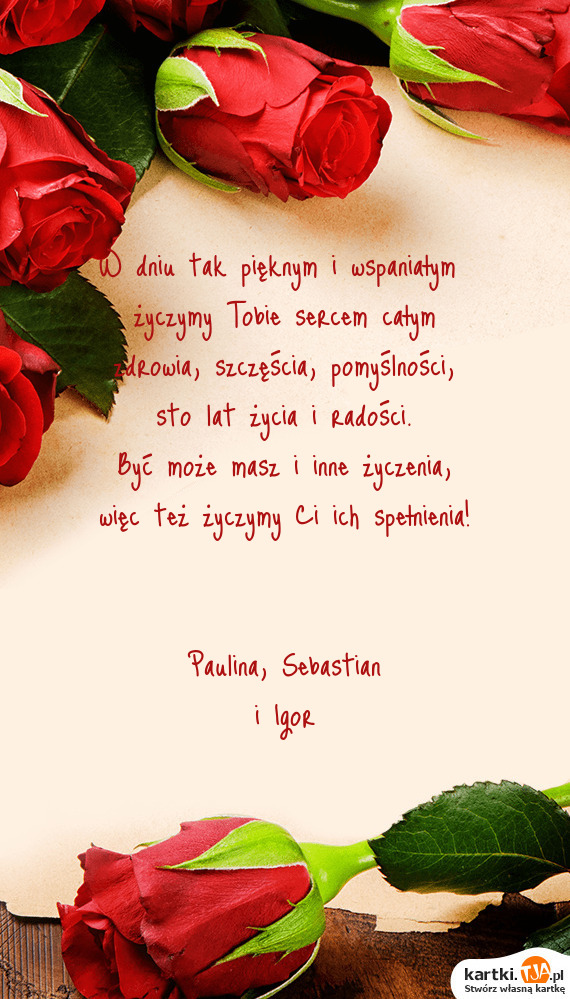 W dniu tak pięknym i wspaniałym
życzymy Tobie sercem całym
zdrowia, szczęścia, pomyślności,
sto lat życia i radości.
Być może masz i inne życzenia,
więc też życzymy Ci ich spełnienia!
Paulina, Sebastian
i Igor
kartki.TJA.pl
Stwórz własną kartkę